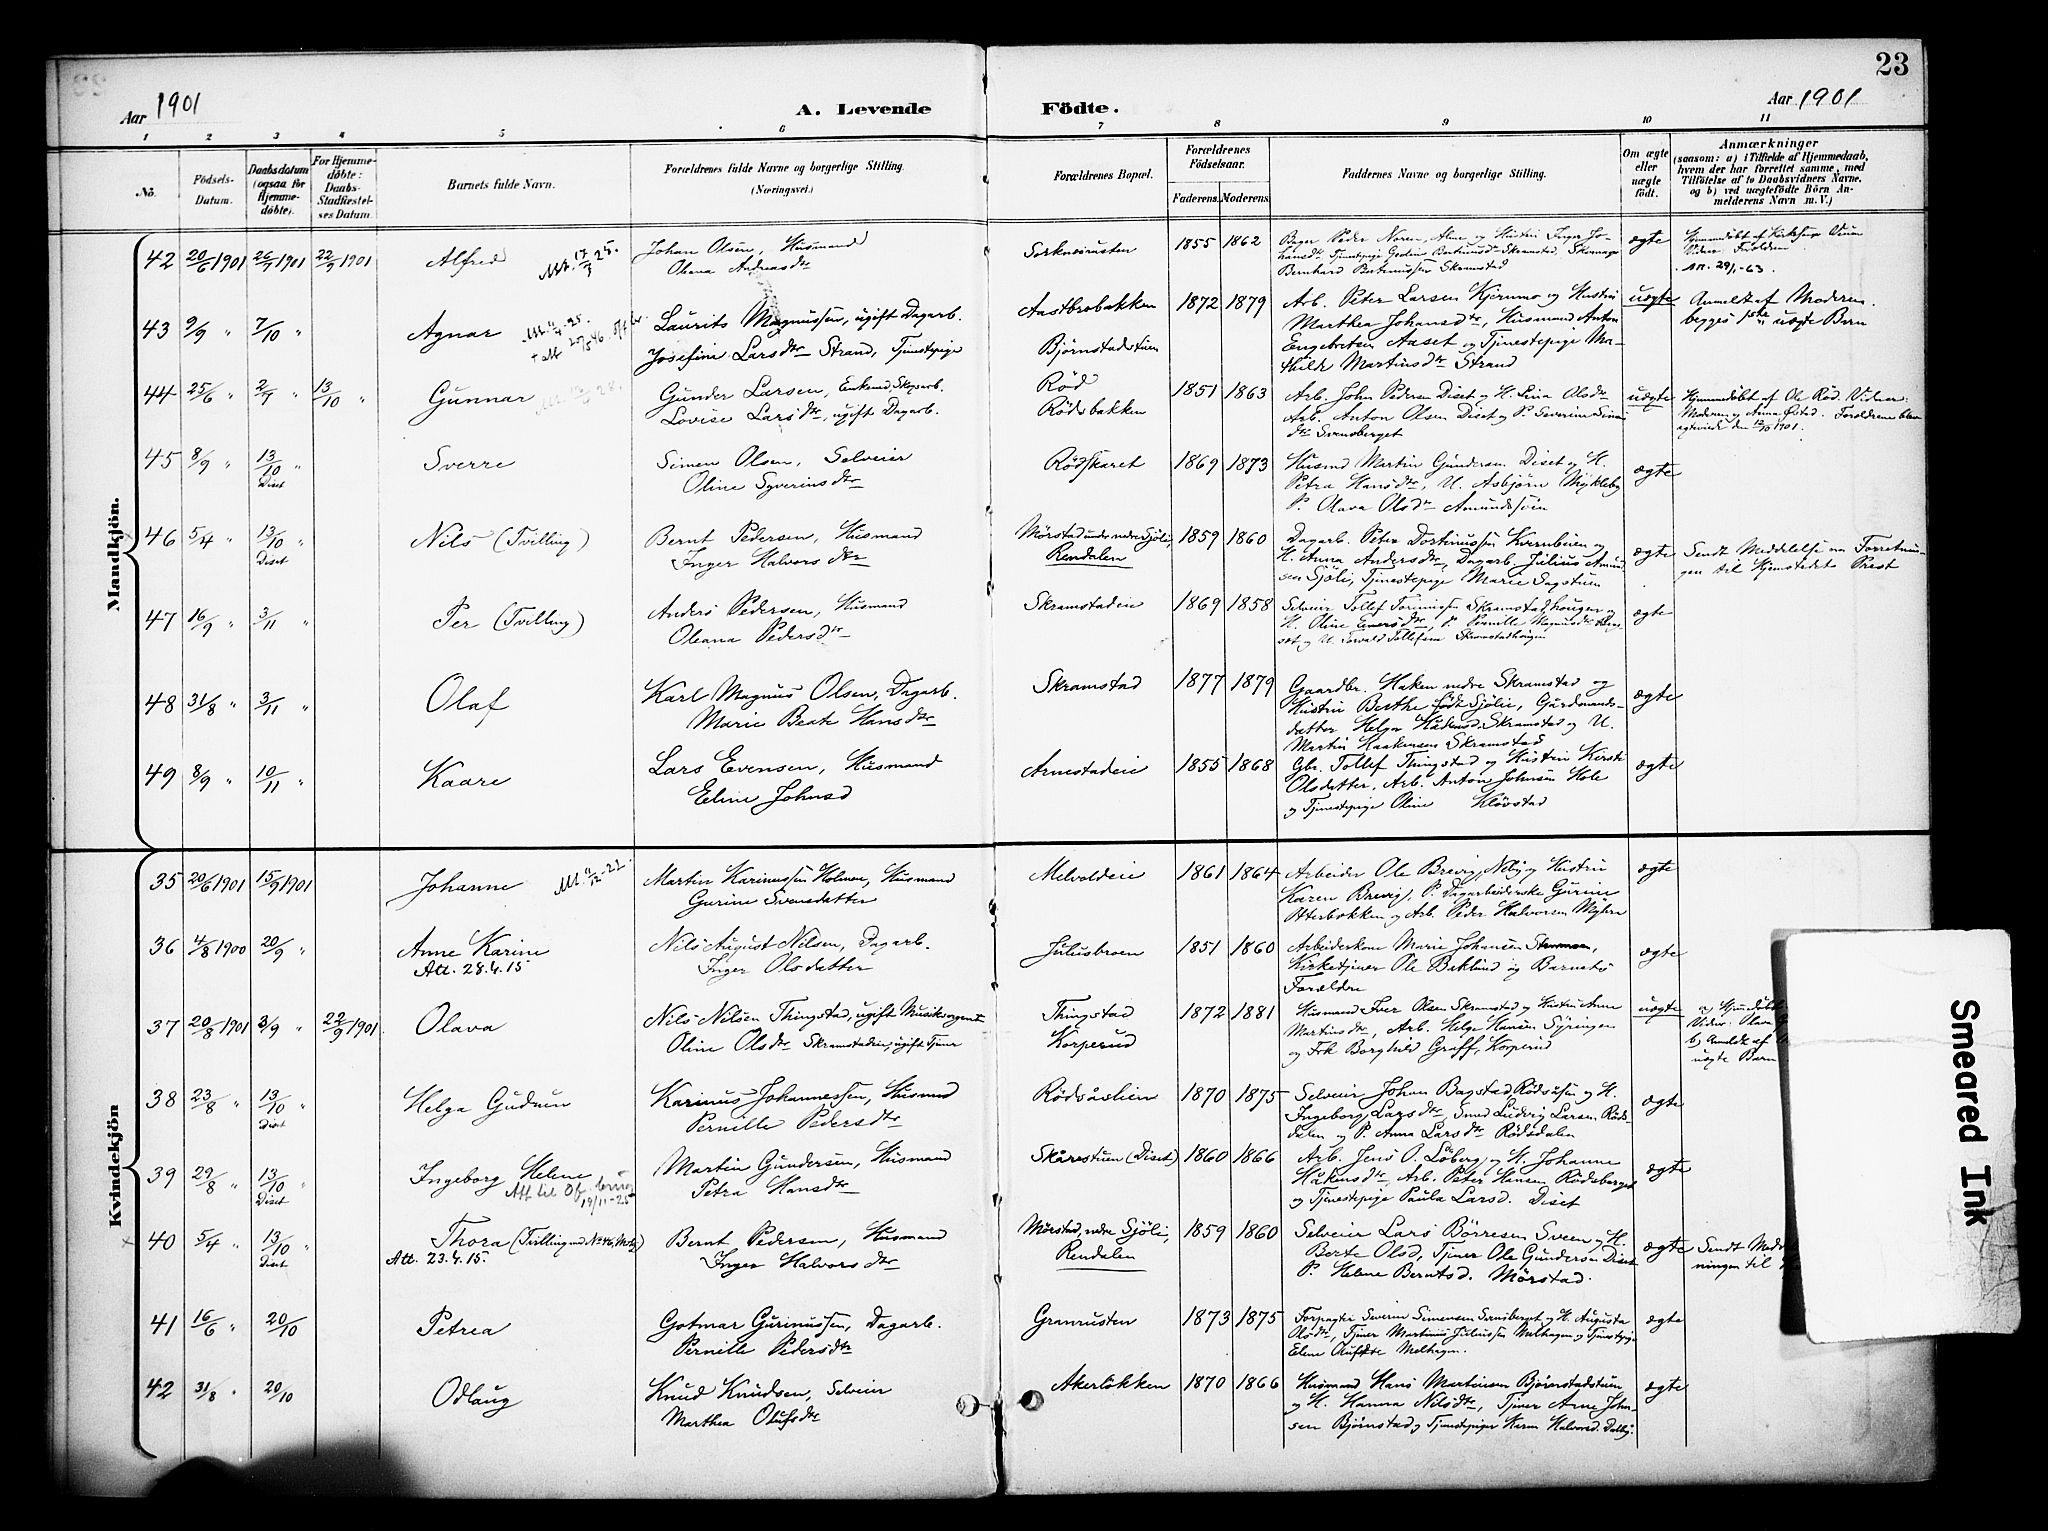 23
Aar 1901 A. Levende Födte. Aar 1901
1 2 3 4 5 6 7 8 9 10 11
No. Födsels-Datum. Daabsdatum (ogsaa for Hjemmedöbte). For Hjemmedöbte: Daabs-Stadfæstelses Datum. Barnets fulde Navn. Forældrenes fulde Navne og borgerlige Stilling. (Næringsvei.) Forældrenes Bopæl. Forældrenes Födselsaar. Faderens. Moderens. Faddernes Navne og borgerlige Stilling. Om ægte eller uægte födt. Anmærkninger (saasom: a) i Tilfælde af Hjemmedaab, hvem der har forrettet samme, med Tilföielse af to Daabsvidners Navne, og b) ved uægtefödte Börn Anmelderens Navn m. V.)
Mandkjön.
42 20/6 1901 26/7 1901 22/9 1901 Alfred
Johan Olsen, Husmand
Olena Andreasdtr
1855 1862
Bernhard Skramstad
ægte
43 9/9 " 7/10 " Agnar
Laurits Magnussen, ugift Dagarb.
Josefine Larsdtr Strand, Tjenestepige
Aastbrobakken
Björnstadstuen
1872 1879
Arb. Peter Larsen Kjernmo og Hustru
Marthea Johansdtr, Husmand Anton
Engebretsen Aaset og Tjenestepige Ma-
thilde Martinsdtr Strand
uægte
Anmeldt af Moderen.
begges 1ste uægte Barn
44 25/6 " 2/7 " 13/10 " Gunnar
Gunder Larsen, Enkemd Skogsarb.
Lovise Larsdtr, ugift Dagarb.
Röd
Rödsbakken
1851 1863
Arb. John Pedersen Diset og H. Lina Olsdtr
Arb. Anton Olsen Diset og P. Severine
dtr Svensberget
uægte
Hjemmedöbt af Ole Röd. Vidner:
Moderen og Anna Östad. Forældrene blev
ægteviede den 12/10 1901.
45 8/9 " 13/10 " Diset Sverre
Simen Olsen, Selveier
Oline Syverinsdtr
Rödskaret
1869 1873
Husmd Martin Gundersen Diset og H.
Petra Hansdtr, U. Asbjörn Mykleby
P. Olava Olsdtr Amundsöen
ægte
46 5/4 " 13/10 " Diset Nils (Tvilling)
Bernt Pedersen, Husmand
Inger Halvorsdtr
Mörstad under nedre Sjöli,
Rendalen
1859 1860
Dagarb. Peter Kvernbuen og
H. Anna Andersdtr, Dagarb. Julius Amund-
sen Sjöli, Tjenestepige Marie Sagstuen
ægte
Sendt Meddelelse om Forretnin-
gen til Hjemstedets Prest
47 16/9 " 3/11 " Per (Tvilling)
Anders Pedersen, Husmand
Oleana Pedersdtr
Skramstadeie
1869 1858
Selveier Tollef Skramstadhaugen og
H. Oline Emersdtr, P. Pernille Magnusdtr
og U. Torvald Tollefsen Skramstadhaugen
ægte
48 31/8 " 3/11 " Olaf
Karl Magnus Olsen, Dagarb.
Marie Beate Hansdtr
Skramstad
1877 1879
Gaardbr. Haken nedre Skramstad og
Hustru Berthe född Sjölie, Gårdmands-
datter Helga Håkensd. Skramstad og U.
Martin Haakensen Skramstad
ægte
49 8/9 " 10/11 " Kaare
Lars Evensen, Husmand
Eline Johnsd
Arnestadeie
1855 1868
Gbr. Tollef Thingstad og Hustru Kirsti
Olsdatter, Arb. Anton Johnsen Hole
og Tjenestepige Oline Klövstad
ægte
Kvindekjön
35 20/6 1901 15/9 1901 Johanne
Martin Karinussen Holmen, Husmand
Gurine Svensdatter
Melvoldeie
1861 1864
Arbeider Ole Brevig, Neby og Hustru
Karen Brevig, P. Dagarbeiderske Gurine
Otterbakken og Arb. Peder Halvorsen Myhre
ægte
36 4/8 1900 20/9 " Anne Karine
Att. 28.4.15
Nils August Nilsen, Dagarb.
Inger Olsdatter
Julusbroen
1851 1860
Arbeiderkone Marie Johansen,
Kirketjener Ole Baklund og Barnets
Forældre
ægte
37 20/8 1901 3/9 " 22/9 1901. Olava
Nils Nilsen Thingstad, ugift Musiksergent
Oline Olsdtr Skramstadeie, ugift Tjener
Thingstad
Korperud
1872 1881
Husmand Iver Olsen Skramstad og Hustru Anne
Martinsdtr, Arb. Helge Hansen Syringen
og Frk Borghild Graff, Korperud
uægte
a) Hjemmedöbt
Vidner: Olava
b) Anmeldt af
uægte Barn
38 23/8 " 13/10 " Diset Helga Gudrun
Karinus Johannessen, Husmand
Pernille Pedersdtr
Rödsåslien
1870 1875
Selveier Johan Bagstad, Rödsåsen og H.
Ingeborg Larsdtr, Smed Ludvig Larsen Röds-
dalen og P. Anna Larsdtr Rödsdalen
ægte
39 29/8 " 13/10 Diset Ingeborg Helene
19/11-25
Martin Gundersen, Husmand
Petra Hansdtr
Skårestuen (Diset)
1860 1866
Arb. Jens O. Löberg og H. Johanne
Håkensdtr, Arb. Peter Hansen Rödsberget
og Tjenestepige Paula Larsd. Diset
ægte
40 5/4 " 13/10 " Diset Thora (Tvilling med No 46, Mdkj)
Att. 23.4.15.
Bernt Pedersen, Husmand
Inger Halvorsdtr
Mörstad, nedre Sjöli,
Rendalen
1859 1860
Selveier Lars Börresen Sveen og H.
Berte Olsd, Tjener Ole Gundersen Diset
P. Helene Berntsd. Mörstad.
ægte
Sendt Med
ningen til
41 16/6 " 20/10 Petrea
Gotmar Gurinussen, Dagarb.
Pernille Pedersdtr
Granrusten
1873 1875
Forpagter Severin Simensen Svensberget og H. Augusta
Olsdtr, Tjener Martinus Juliussen Melhagen og Tjenestepige
Elene Melhagen.
ægte
42 31/8 " 20/10 Odlaug
Knud Knudsen, Selveier
Marthea Olufsdtr
Akerlökken
1870 1866
Husmand Hans Martinsen Björnstadstuen
og H. Hanna Nilsdtr, Tjener Arne John-
sen Björnstad og Tjenestepige Karen Halvorsd. Dalby.
ægte
Smeared Ink